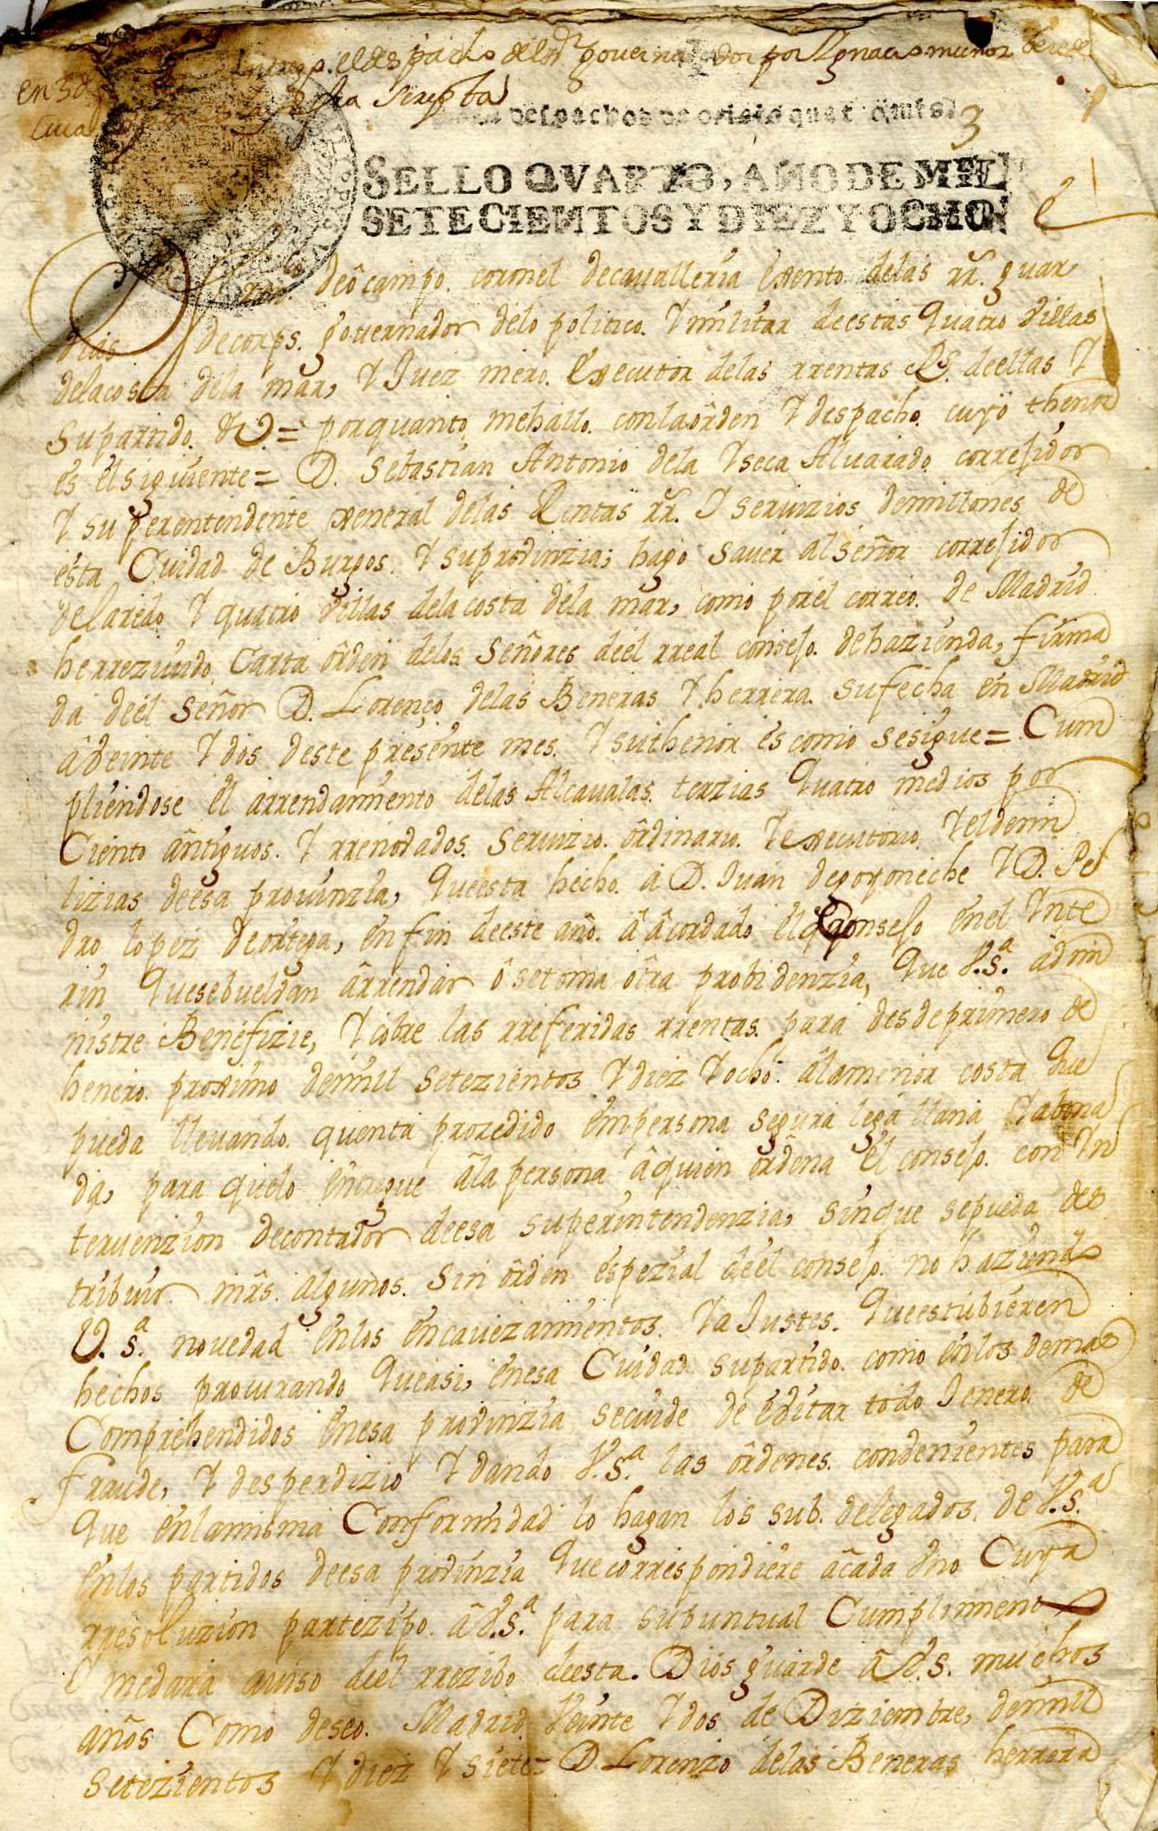 despacho del Sr governador por Ygnacio munoz
en 3 de
Para despachos de oficio quatro mrs.
3
SELLO QVARTO, AÑO DE MIL
SETECIENTOS Y DIEZ Y OCHO
de ôcampo. coronel de cavalleria Exento. delas rrs. guar
dias de corps. governador delo politico. Y militar de estas quatro Villas
dela costa dela mar, Y Juez mero. Executor delas rrentas Rs. de ellas Y
su partido. &= porquanto me hallo. con la ôrden Y despacho. cuyo thenor
es el siguiente= D. Sebastian Antonio dela Yseca Alvarado. corregidor
Y superentendente xeneral delas Rentas rrs. Y servizios de millones de
esta Ciudad de Burgos. Y su provinzia; hago saver al señor corregidor
de laredo Y quatro villas dela costa dela mar, como por el correo. de Madrid
he rrezivido. Carta ôrden delos Señores de el rreal consejo. de hazienda, firma
da de el señor D. Lorenço delas Beneras Y herrera. su fecha en Madrid
â veinte Y dos deste presente mes. Y su thenor es como se sigue= Cum
pliendose el arrendamiento delas Alcavalas. terzias quatro medios por
Ciento ântiguos. Y rrenovados. Servizio. ôrdinario. Y executorio. Y el de mi
lizias de esa provinzia, que esta hecho. a D. Juan de goyoneche Y D. Pe
dro lopez de ortega, en fin de este año. â âcordado el consejo en el Ynte
rin que se buelvan ârrendar ô se toma ôtra probidenzia, que V.S.ª admi
nistre Benefizie, Y cobre las rreferidas rrentas. para desde primero de
henero. proximo de mill setezientos Y diez Y ocho. âla menor costa que
pueda llevando. quenta prozedido en persona segura lega llana Y abona
da, para que lo entregue âla persona â quien ôrdena el consejo. con Yn
tervenzion de contador de esa superintendenzia, sin que se pueda des
tribuir mrs. algunos. sin ôrden espezial de el consejo. no haziendo
V.S.ª novedad en los encavezamientos. Y aJustes. que estubieren
hechos procurando que asi, en esa Ciudad su partido. como en los demas
Comprehendidos en esa provinzia se cuide de evitar todo Jenero. de
fraude, Y desperdizio Y dando V.S.ª las ôrdenes. convenientes para
que en la misma Conformidad lo hagan los sub. delegados. de V.S.ª
en los partidos de esa provinzia que correspondiere âcada Vno Cuya
rresoluzion partezipo. â V.S.ª para su puntual Cumplimiento
Y me dara aviso de el rrezibo de esta. Dios guarde â V.S. muchos
años Como deseo. Madrid Veinte Y dos de Diziembre, de mil
setezientos Y diez Y siete= D Lorenzo delas Beneras herrera